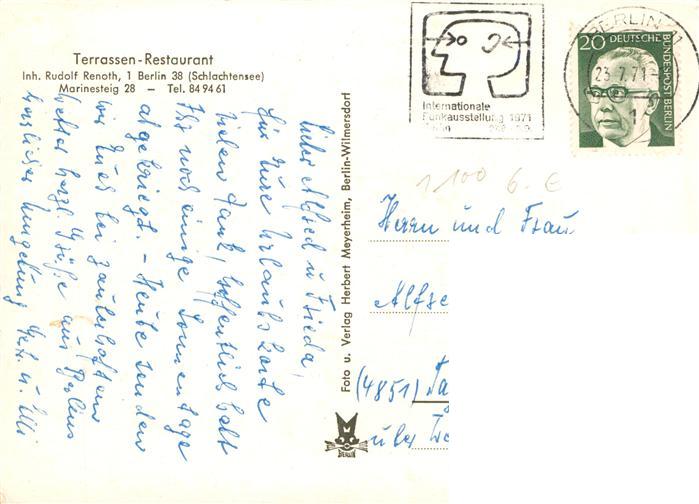 Terrassen-Restaurant
Inh. Rudolf Renoth, 1 Berlin 38 (Schlachtensee)
Marinesteig 28 — Tel. 84 94 61
Lieber Alfred u Frieda,
für Eure Urlaubskarte
vielen Dank, hoffentlich habt
Ihr noch einige Sonnentage
abgekriegt. – Heute senden
wir Euch bei zauberhaftem
Wetter herzl. Grüße aus Berlins
herrlicher Umgebung u. Elli
Foto u. Verlag Herbert Meyerheim, Berlin-Wilmersdorf
BERLIN
Internationale
Funkausstellung 1971
BERLIN 11
23.7.71
20 DEUTSCHE BUNDESPOST BERLIN
1100 6.€
Herrn und Frau
(4851)
über